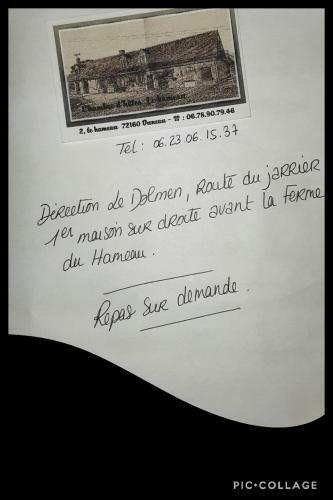 Chambre d'hôtes Le hameau
2, le hameau 72160 Duneau - ☎ : 06.78.90.79.46
Tel : 06.23.06.15.37
Direction de Dolmen, Route du jarrier
1er maison sur droite avant la Ferme
du Hameau.
Repas sur demande.
PIC•COLLAGE